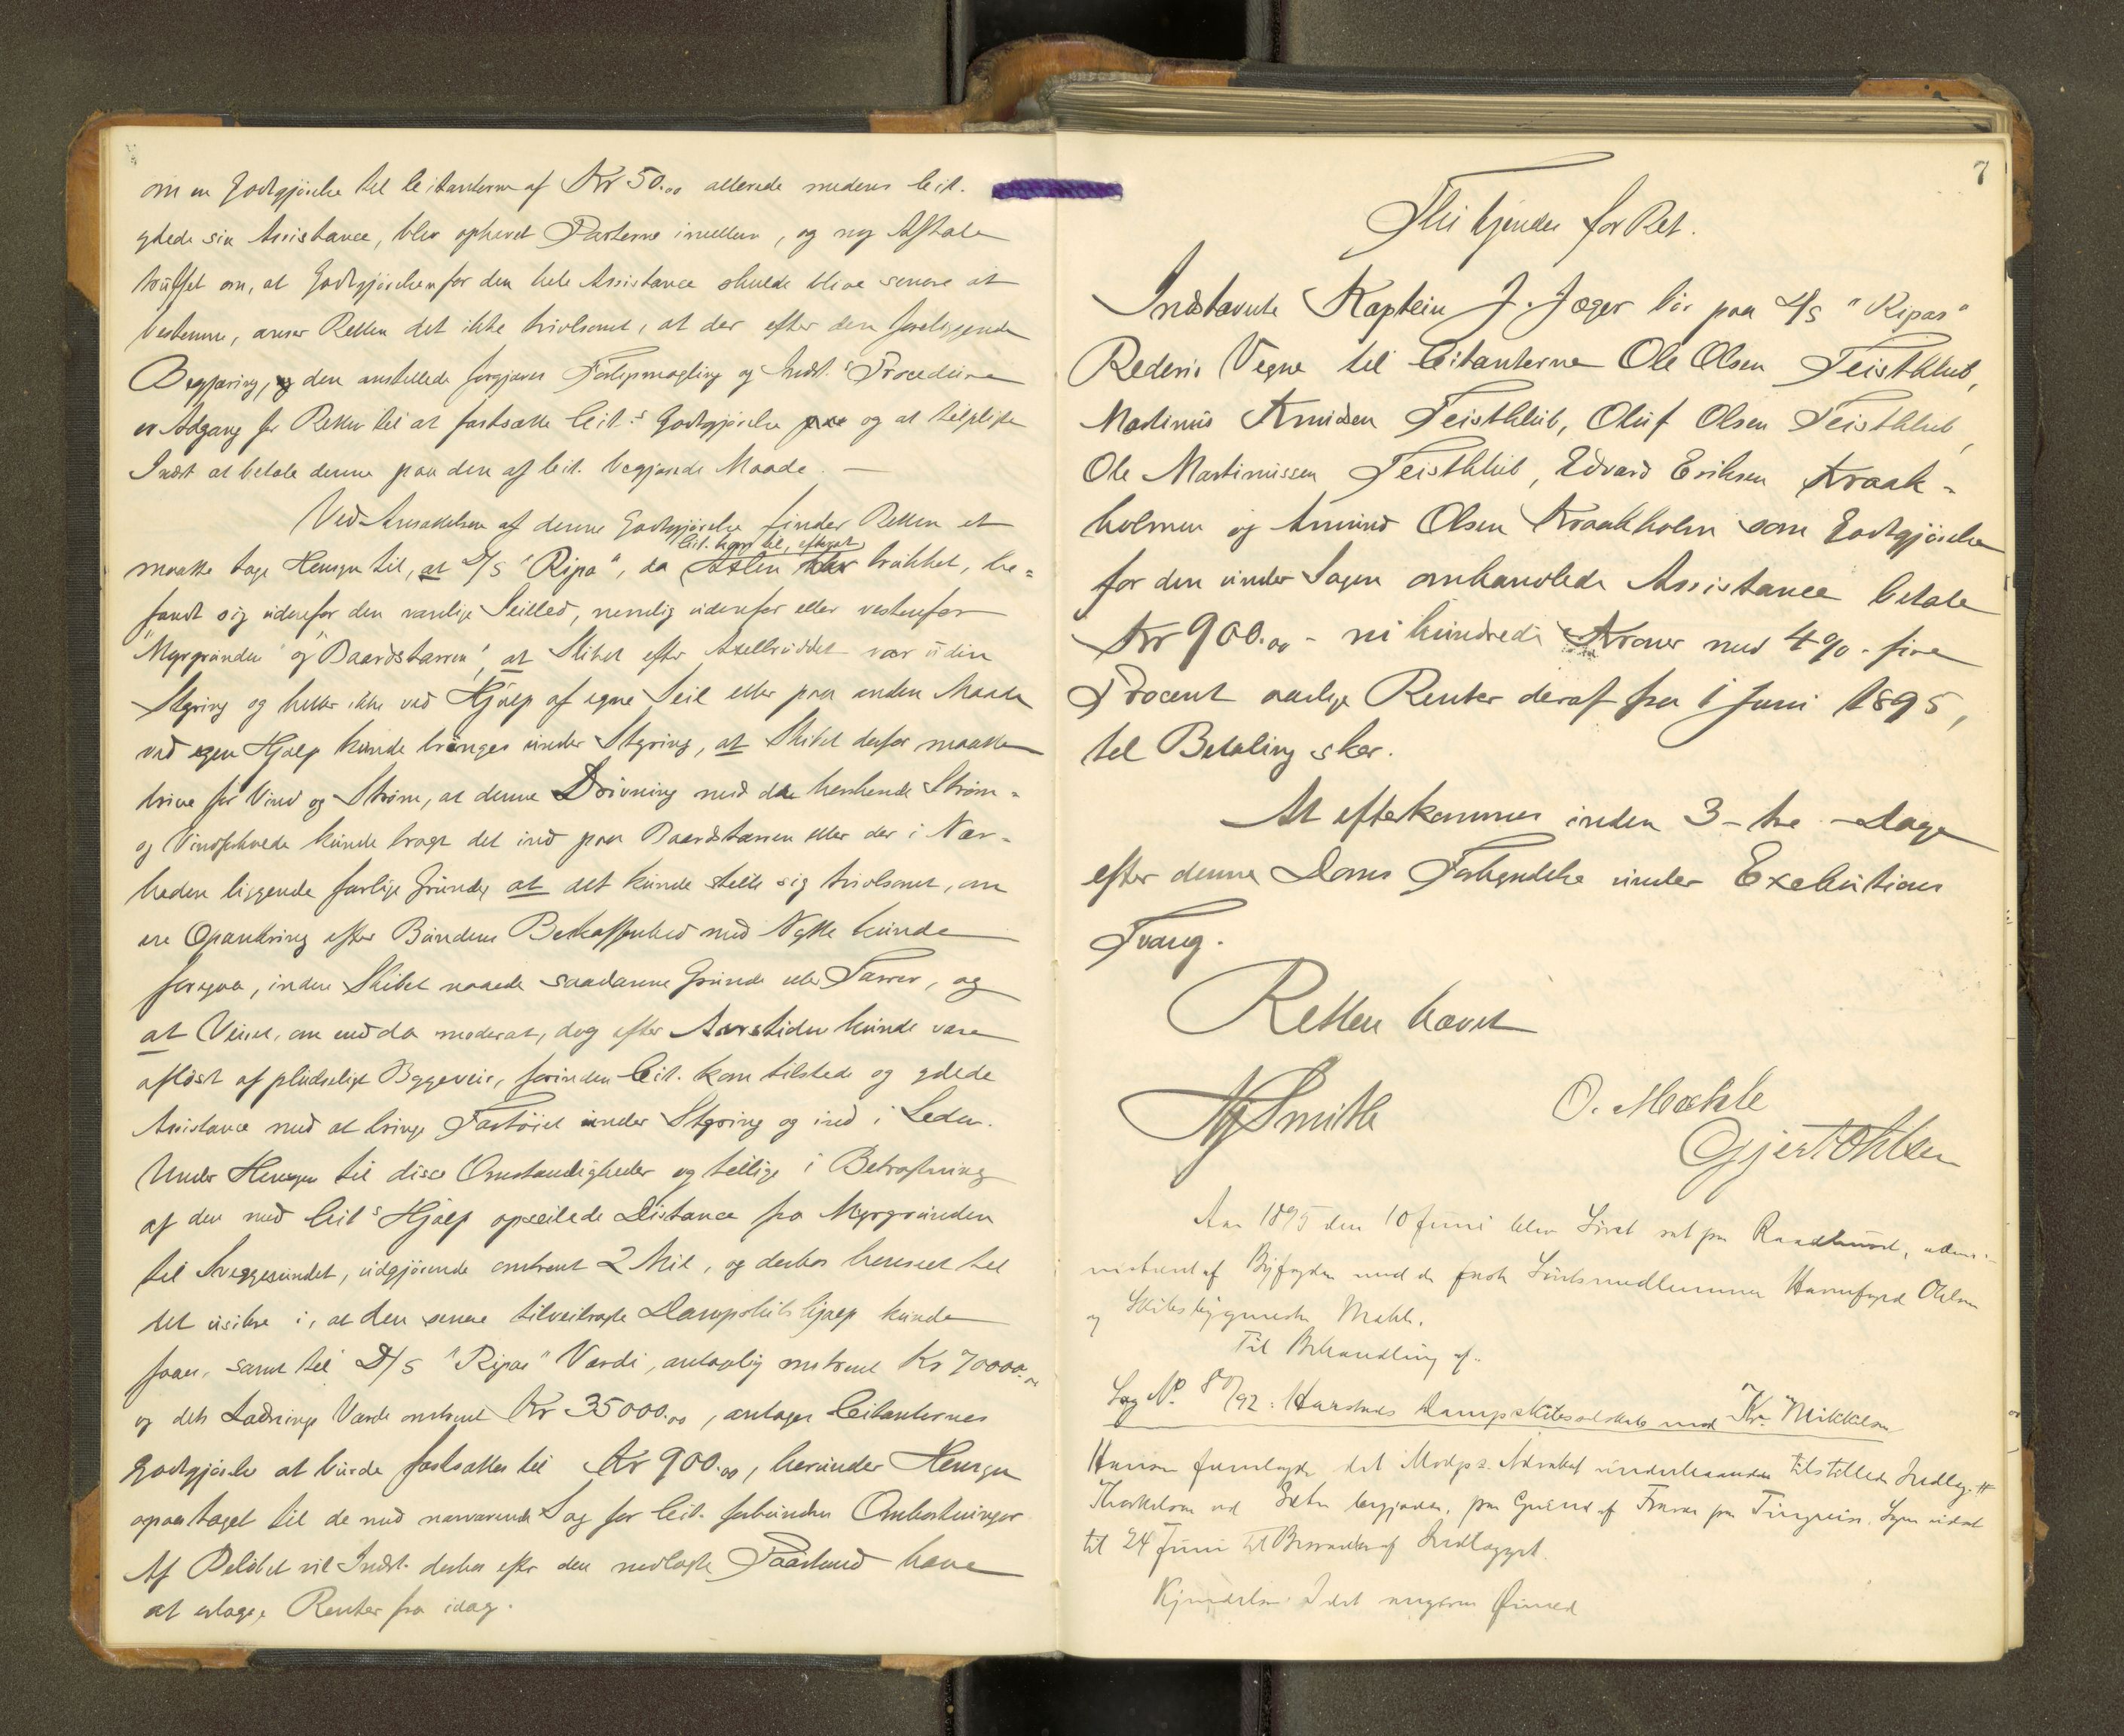 om en Godtgjørelse til Citanterne af Kr 50.00 allerede medens Cit.
ydede sin Assistance, blev ophævet Parterne imellem, og ny Aftale
truffet om, at Godtgjørelsen for den hele Assistance skulde blive senere at
bestemme, anser Retten det ikke tvivlsomt, at der efter den foreliggende
Begjæring, og den anstillede forgjæves Forligsmægling og Indst.s Procedure
er Adgang for Retten til at fastsætte Cit.s Godtgjørelse og at tilpligte
Indst at betale denne paa den af Cit. begjærede Maade. —
Ved Ansættelsen af denne Godtgjørelse finder Retten at
Cit. kom til, efterat
maatte tage Hensyn til, at D/S "Ripa", da Axlen var brukket, be=
fandt sig udenfor den vanlige Seilled, nemlig udenfor eller vestenfor
"Myrgrunden" og "Baardstarren", at Skibet efter Axelbruddet var uden
Styring og heller ikke ved Hjælp af egne Seil eller paa anden Maade
ved egen Hjælp kunde bringes under Styring, at Skibet derfor maatte
drive for Vind og Strøm, at denne Drivning med de herskende Strøm-
og Vindforholde kunde bragt det ind paa Baardstarren eller der i Nær-
heden liggende farlige Grunde, at det kunde stille sig tvivlsomt, om
en Opankring efter Bundens Beskaffenhed med Nytte kunde
foregaa, inden Skibet naaede saadanne Grunde eller Tarrer, og
at Veiret, om end da moderat, dog efter Aarstiden kunde være
afløst af pludseligt Byggeveir, forinden Cit. kom tilstede og ydede
Assistance med at bringe Fartøiet under Styring og ind i Leden.
Under Hensyn til disse Omstændigheder og tillige i Betragtning
af den med Cit.s Hjælp opseilede Distance fra Myrgrunden
til Sveggesundet, udgjørende omtrent 2 Mil, og derhos henseet til
det usikre i, at den senere tilveibragte Dampskibshjælp kunde
faaes, samt til D/S "Ripas" Værdi, antagelig omtrent Kr 70000.00
og dets Ladnings Værdi omtrent Kr 35000.00, antages Citanternes
Godtgjørelse at burde fastsættes til Kr 900.00, herunder Hensyn
ogsaa taget til de med nærværende Sag for Cit. forbundne Omkostninger
Af Beløbet vil Indst. derhos efter den nedlagte Paastand have
at erlægge Renter fra idag.
7
Thi kjendes for Ret.
Indstævnte Kaptein J. Jæger bør paa D/S "Ripas"
Rederis Vegne til Citanterne Ole Olsen Teistklub,
Martinus Knudsen Teistklub, Oluf Olsen Teistklub,
Ole Martinussen Teistklub, Edvard Eriksen Kraak-
holmen og Amund Olsen Kraakholm som Godtgjørelse
for den under Sagen omhandlede Assistance betale
Kr 900.00 - ni hundrede Kroner med 4% - fire
Procent aarlige Renter deraf fra 1 Juni 1895,
til Betaling sker.
At efterkommes inden 3 - tre - Dage
efter denne Doms Forkyndelse under Exekutions
Tvang.
Retten hævet
Smith
O. Mæhle
Gjert Ohlsen
Aar 1895 den 10 Juni blev Søret sat paa Raadhuset, admi-
nistreret af Byfogden med de faste Søretsmedlemmer Havnefoged Ohlsen
og Skibsbygmester Mæhle.
Til Behandling af.
Sag No. 80/92: Harstads Dampskibsselskab mod Kr. Mikkelsen
Hansen fremlagde det Modp.s Advokat underhaanden tilstillede Indlæg.
Thorkelsen ved begjærede, paa Grund af Fravær paa Tingreise, Sagen udsat
til 24 Juni til Besvarelse af Indlægget.
Kjendelse: I det